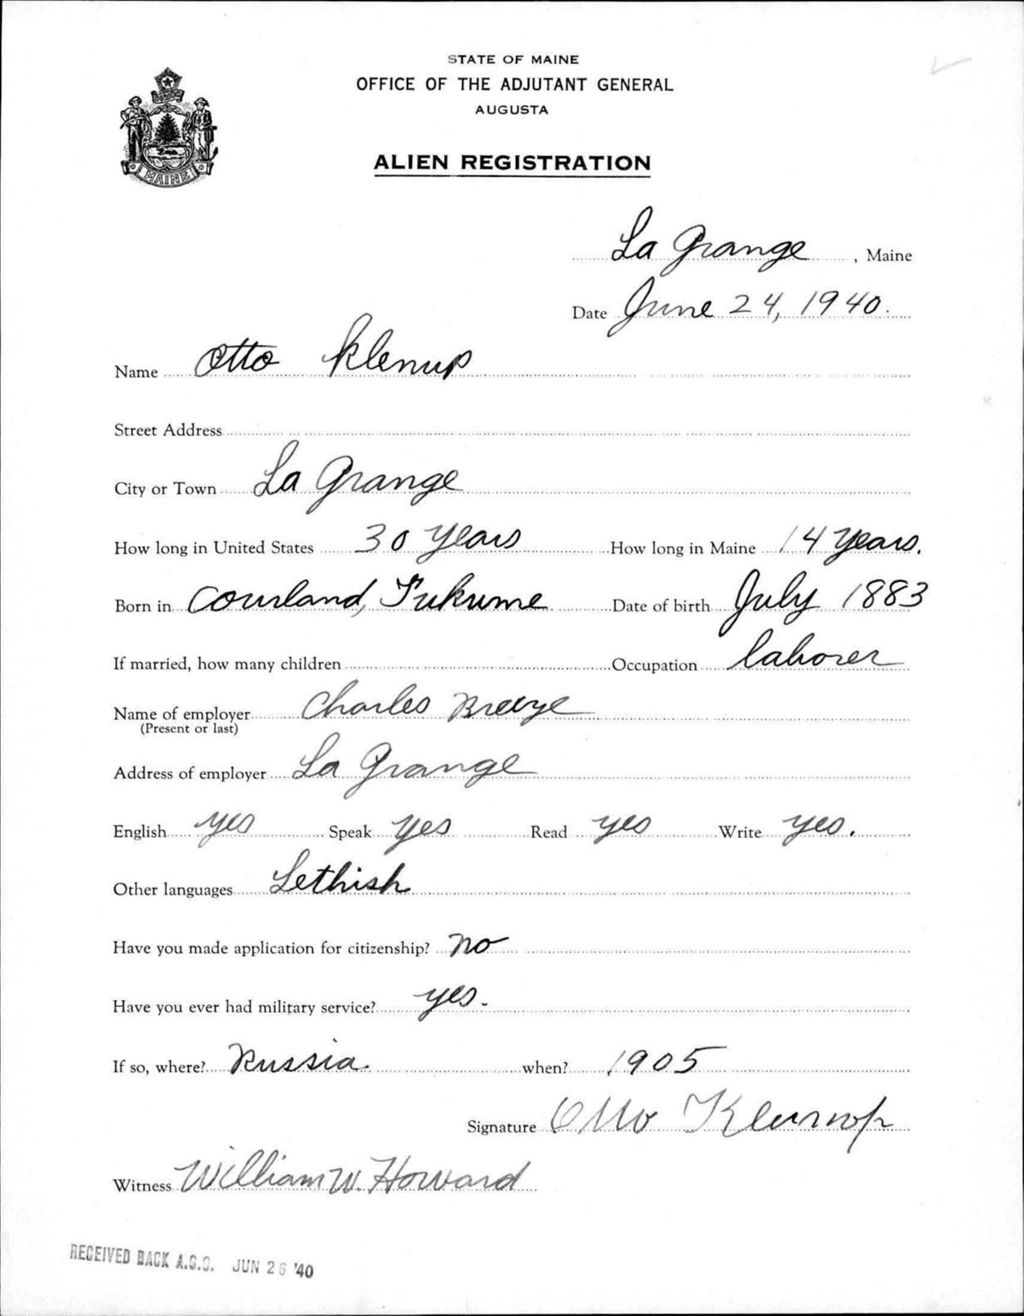 STATE OF MAINE
OFFICE OF THE ADJUTANT GENERAL
AUGUSTA
ALIEN REGISTRATION
MAINE
La Grange, Maine
Date June 24, 1940.
Name Otto Klenup
Street Address
City or Town La Grange
How long in United States 30 years How long in Maine 14 years.
Born in Courland, Tukume Date of birth July 1883
If married, how many children Occupation laborer
Name of employer Charles
(Present or last)
Address of employer La Grange
English yes Speak yes Read yes Write yes.
Other languages Lethish
Have you made application for citizenship? no
Have you ever had military service? yes.
If so, where? Russia. when? 1905
Signature Otto
Witness William W. Howard
RECEIVED BACK A.G.O. JUN 26 '40